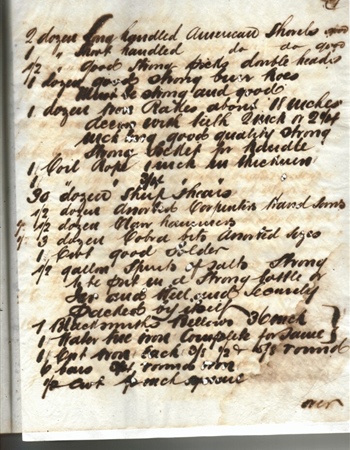 2 dozen long handled American Shovels
1 " Short handled do do
1/2 " Good Strong picks double heads
1 dozen good strong bush Hoes
must be strong and good
1 dozen Iron Rakes about 11 inches
with teeth 2 inch or 2 1/4
inch long good quality strong
strong socket for Handle
1 Coil Rope 1 inch in thickness
1 " " 3/4 "
30 dozen Sheep Shears
1/2 dozen Assorted Carpenters Hand Saws
1/2 dozen Claw hammers
3 dozen bits Assorted sizes
1 Cwt good Solder
1/2 gallon Spirits of Salts Strong
to be put in a Strong bottle or
Jar and Well and Securely
Packed by itself
1 Blacksmiths Bellows 36 inch
1 Water Iron Complete for Same
1 Cwt Iron each 3/8 1/2 & 5/8 round
6 bars round iron
1/2 Cwt inch
over